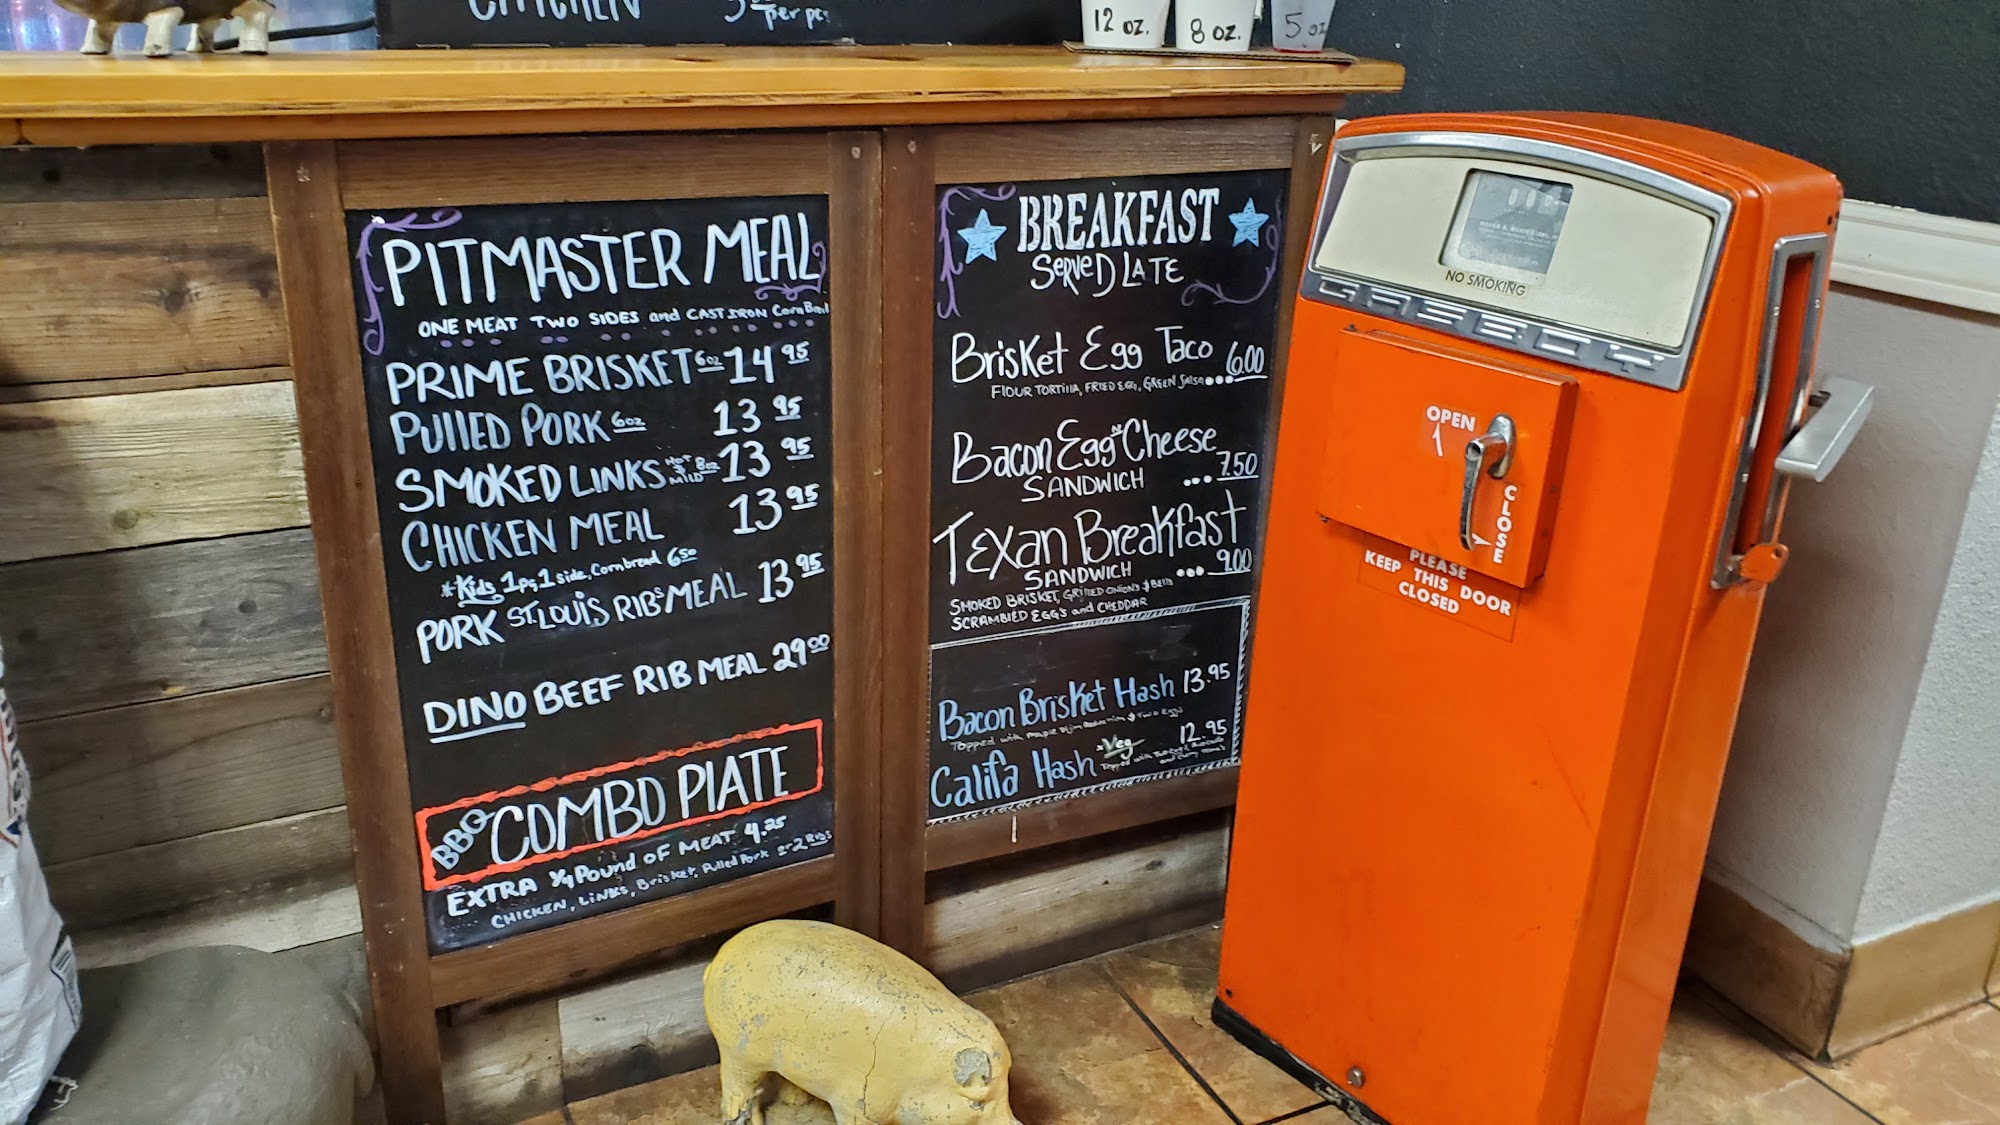 CHICKEN
per pc.
12 oz.
8 oz.
5 oz
PITMASTER MEAL
ONE MEAT TWO SIDES and CAST IRON Corn Bread
PRIME BRISKET 6oz 14 95
PULLED PORK 6oz 13 95
SMOKED LINKS HOT & MILD 8oz 13 95
CHICKEN MEAL 13 95
*Kids 1pc, 1 side, Cornbread 6 50
PORK ST. LOUIS RIBS MEAL 13 95
DINO BEEF RIB MEAL 29 00
BBQ COMBO PLATE
EXTRA 1/4 Pound OF MEAT 4.25
CHICKEN, LINKS, Brisket, Pulled Pork or 2 RIBS
BREAKFAST
SERVED LATE
Brisket Egg Taco 6.00
FLOUR TORTILLA, FRIED EGG, GREEN SALSA...
Bacon Egg N Cheese
SANDWICH ...7.50
Texan Breakfast
SANDWICH ...9.00
SMOKED BRISKET, GRILLED ONIONS & Bells
SCRAMBLED EGGS and CHEDDAR
Bacon Brisket Hash 13.95
Topped with Maple & Two Eggs
Califa Hash *Veg 12.95
Topped with
NO SMOKING
GASBOY
OPEN
CLOSE
PLEASE
KEEP THIS DOOR
CLOSED